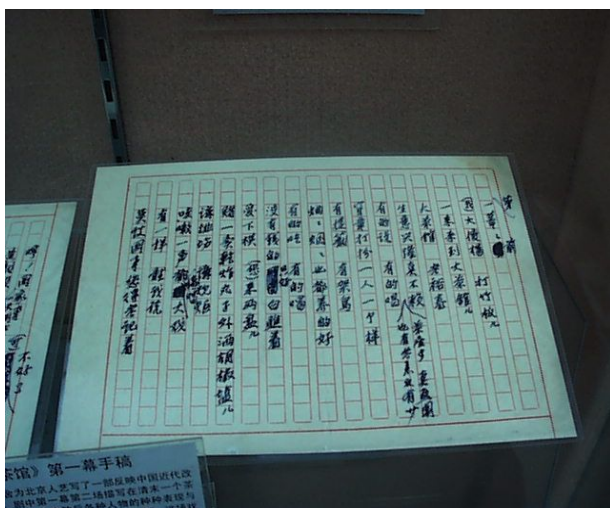 第一幕、前
(我)大傻杨 打竹板儿
一来来到大茶馆儿
大茶馆 老裕泰
生意兴隆真不赖 茶座多 真热闹
也有老来也有少
有的说 有的唱
穿章打扮一人一个样
有提笼 有架鸟
蛐々蝈々也都养的好
有的吃 有的喝
没有钱的只好白瞧着
爱下棋 (您)来两盘儿
赌一卖乾炸丸子外洒胡椒盐儿
讲排场 讲规矩
咳嗽一声都像唱大戏
有一样 听我说
莫谈国事您得老记着
不好了
茶馆》第一幕手稿
舍为北京人艺写了一部反映中国近代改
剧中第一幕第二场描写在清末一个茶
各种人物的种种表现与